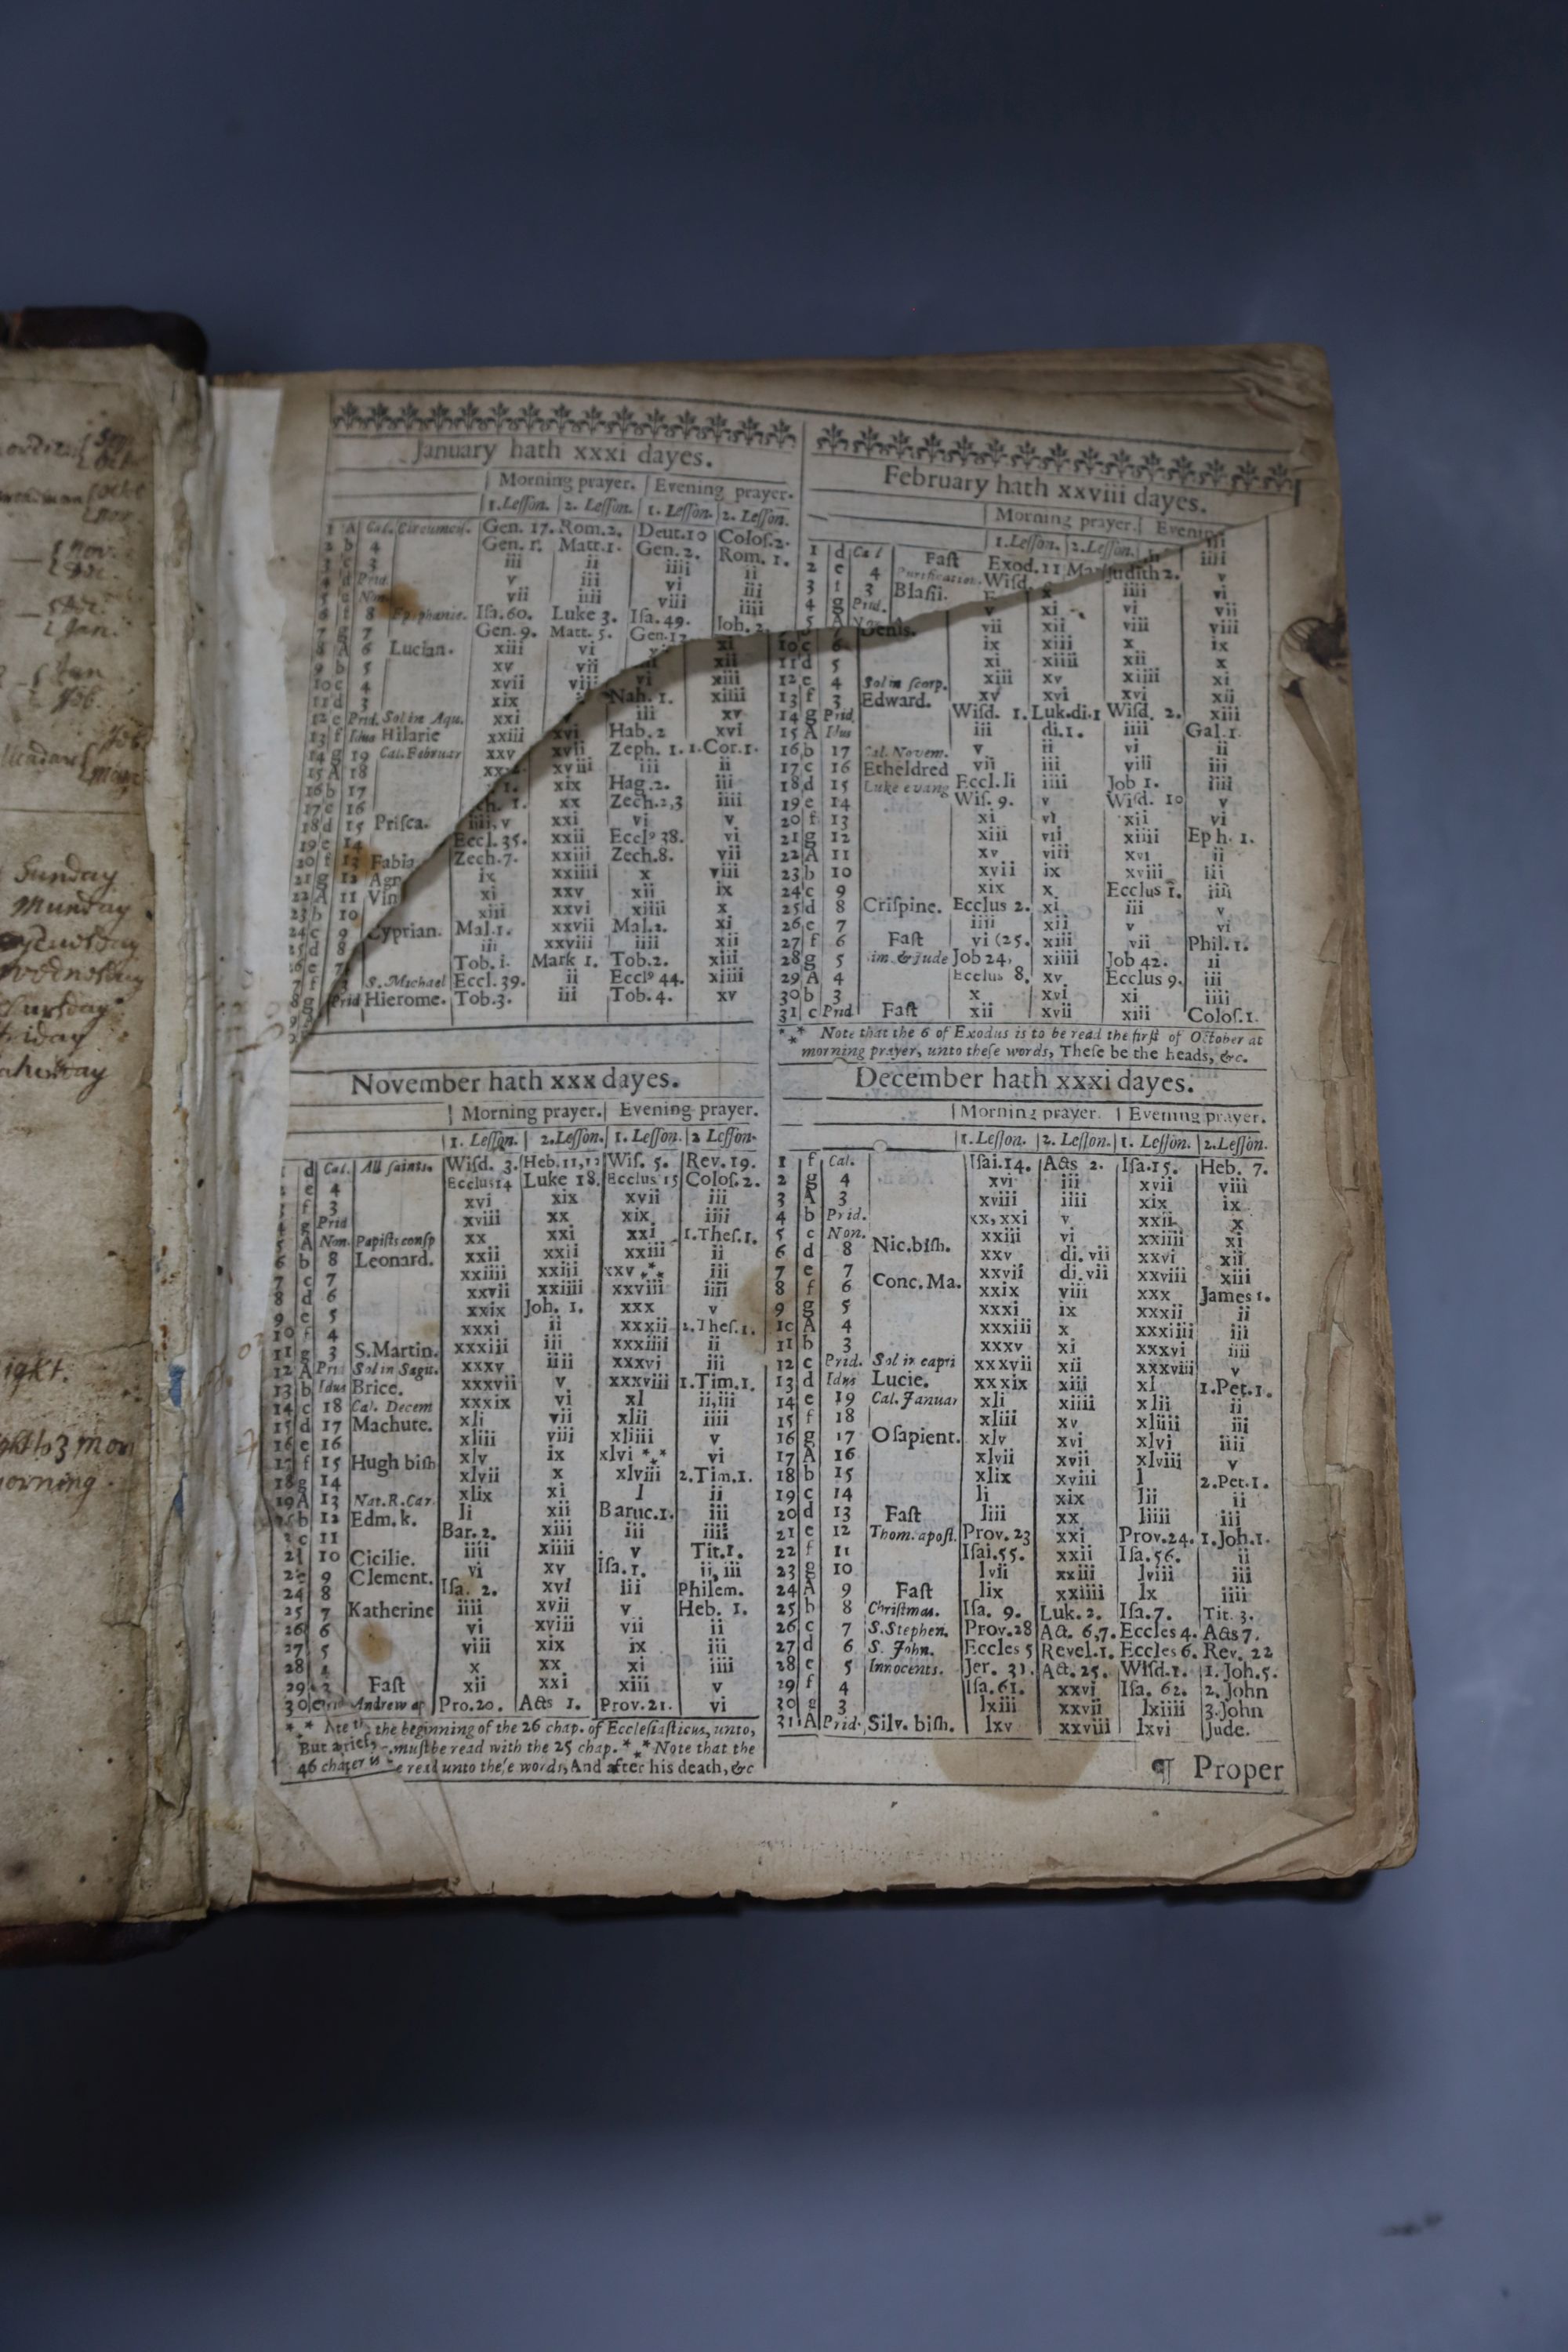 Sunday
Munday
January hath xxxi dayes.
Morning prayer. Evening prayer.
1. Leſſon. 2. Leſſon. 1. Leſſon. 2. Leſſon.
1 A Cal. Circumciſ. Gen. 17. Rom. 2. Deut. 10 Coloſ. 2.
2 b 4 Gen. 1. Matt. 1. Gen. 2. Rom. 1.
3 c 3 iii ii iiii ii
4 d Prid. v iii vi iii
5 e Non. vii iiii viii iiii
6 f 8 Epiphanie. Iſa. 60. Luke 3. Iſa. 49. Joh. 2.
7 g 7 Gen. 9. Matt. 5. Gen. 12
8 A 6 Lucian. xiii vi
9 b 5 xv vii
10 c 4 xvii viii
11 d 3 xix
12 e Prid. Sol in Aqu. xxi
13 f Idus Hilarie xxiii
14 g 19 Cal. Februar xxv
15 A 18
16 b 17
17 c 16
18 d 15 Priſca.
19 e 14
20 f 13 Fabia
21 g 12 Agn
22 A 11 Vin
23 b 10
24 c 9
25 d 8
xi
xii
vi xiii
Nah. 1. xiiii
iii xv
xvi Hab. 2 xvi
xvii Zeph. 1. 1. Cor. 1.
xviii iii ii
xix Hag. 2. iii
xx Zech. 2,3 iiii
iiii, v xxi vi v
Eccl. 35. xxii Ecclᵒ 38. vi
Zech. 7. xxiii Zech. 8. vii
ix xxiiii x viii
xi xxv xii ix
xiii xxvi xiiii x
Cyprian. Mal. 1. xxvii Mal. 2. xi
iii xxviii iiii xii
Tob. 1. Mark 1. Tob. 2. xiii
S. Michael Eccl. 39. ii Ecclᵒ 44. xiiii
Prid Hierome. Tob. 3. iii Tob. 4. xv
February hath xxviii dayes.
Morning prayer. Evening
1. Leſſon. 2. Leſſon.
1 d Cal Faſt Exod. 11 Mar Judith 2.
2 e 4 Purification. Wiſd
3 f 3 Blaſii.
4 g Prid.
5 A
iiii
v
iiii vi
v xi vi vii
Denis. vii xii viii viii
10 c 6 ix xiii x ix
11 d 5 xi xiiii xii x
12 e 4 Sol in ſcorp. xiii xv xiiii xi
13 f 3 Edward. xv xvi xvi xii
14 g Prid. Wiſd. 1. Luk. di. 1 Wiſd. 2. xiii
15 A Idus iii di. 1. iiii Gal. 1.
16 b 17 Cal. Novem. v ii vi ii
17 c 16 Etheldred vii iii viii iii
18 d 15 Luke evang Eccl. li iiii Job 1. iiii
19 e 14 Wiſ. 9. v Wiſd. 10 v
20 f 13 xi vi xii vi
21 g 12 xiii vii xiiii Eph. 1.
22 A 11 xv viii xvi ii
23 b 10 xvii ix xviii iii
24 c 9 xix x Ecclus 1. iiii
25 d 8 Criſpine. Ecclus 2. xi iii v
26 e 7 iiii xii v vi
27 f 6 Faſt vi (25. xiii vii Phil. 1.
28 g 5 im. & Jude Job 24, xiiii Job 42. ii
29 A 4 Ecclus 8, xv. Ecclus 9. iii
30 b 3 x xvi xi iiii
31 c Prid Faſt xii xvii xiii Coloſ. 1.
*** Note that the 6 of Exodus is to be read the firſt of October at
morning prayer, unto theſe words, Theſe be the heads, &c.
November hath xxx dayes.
Morning prayer. Evening prayer.
1. Leſſon. 2. Leſſon. 1. Leſſon. 2 Leſſon.
d Cal. All ſaints. Wiſd. 3. Heb. 11,12 Wiſ. 5. Rev. 19.
e 4 Ecclus 14 Luke 18. Ecclus 15 Coloſ. 2.
f 3 xvi xix xvii iii
g Prid xviii xx xix iiii
5 A Non. Papiſts conſp xx xxi xxi 1. Theſ. 1.
6 b 8 Leonard. xxii xxii xxiii ii
7 c 7 xxiiii xxiii xxv *** iii
8 d 6 xxvii xxiiii xxviii iiii
9 e 5 xxix Joh. 1. xxx v
10 f 4 xxxi ii xxxii 2. Theſ. 1.
11 g 3 S. Martin. xxxiii iii xxxiiii ii
12 A Pri. Sol in Sagit. xxxv iiii xxxvi iii
13 b Idus Brice. xxxvii v xxxviii 1. Tim. 1.
14 c 18 Cal. Decem xxxix vi xl ii, iii
15 d 17 Machute. xli vii xlii iiii
16 e 16 xliii viii xliiii v
17 f 15 Hugh biſh xlv ix xlvi *** vi
18 g 14 xlvii x xlviii 2. Tim. 1.
19 A 13 Nat. R. Car. xlix xi l ii
b 12 Edm. k. li xii Baruc. 1. iii
c 11 Bar. 2. xiii iii iiii
10 Cicilie. iiii xiiii v Tit. 1.
9 Clement. vi xv Iſa. 1. ii, iii
24 8 Iſa. 2. xvi iii Philem.
25 7 Katherine iiii xvii v Heb. 1.
26 6 vi xviii vii ii
27 5 viii xix ix iii
28 4 x xx xi iiii
29 3 Faſt xii xxi xiii v
30 e Prid Andrew ap Pro. 20. Acts 1. Prov. 21. vi
*** the beginning of the 26 chap. of Eccleſiaſticus, unto,
But a muſt be read with the 25 chap. *** Note that the
46 read unto theſe words, And after his death, &c
December hath xxxi dayes.
Morning prayer. Evening prayer.
1. Leſſon. 2. Leſſon. 1. Leſſon. 2. Leſſon.
1 f Cal. Iſai. 14. Acts 2. Iſa. 15. Heb. 7.
2 g 4 xvi iii xvii viii
3 A 3 xviii iiii xix ix
4 b Prid. xx, xxi v xxii x
5 c Non. xxiii vi xxiiii xi
6 d 8 Nic. biſh. xxv di. vii xxvi xii
7 e 7 xxvii di. vii xxviii xiii
8 f 6 Conc. Ma. xxix viii xxx James 1.
9 g 5 xxxi ix xxxii ii
10 A 4 xxxiii x xxxiiii iii
11 b 3 xxxv xi xxxvi iiii
12 c Prid. Sol in capri xxxvii xii xxxviii v
13 d Idus Lucie. xxxix xiii xl 1. Pet. 1.
14 e 19 Cal. Januar xli xiiii xlii ii
15 f 18 xliii xv xliiii iii
16 g 17 O ſapient. xlv xvi xlvi iiii
17 A 16 xlvii xvii xlviii v
18 b 15 xlix xviii l 2. Pet. 1.
19 c 14 li xix lii ii
20 d 13 Faſt liii xx liiii iii
21 e 12 Thom. apoſt. Prov. 23 xxi Prov. 24. 1. Joh. 1.
22 f 11 Iſai. 55. xxii Iſa. 56. ii
23 g 10 lvii xxiii lviii iii
24 A 9 Faſt lix xxiiii lx iiii
25 b 8 Chriſtmas. Iſa. 9. Luk. 2. Iſa. 7. Tit. 3.
26 c 7 S. Stephen. Prov. 28 Act. 6, 7. Eccles 4. Acts 7.
27 d 6 S. John. Eccles 5 Revel. 1. Eccles 6. Rev. 22
28 e 5 Innocents. Jer. 31. Act. 25. Wiſd. 1. 1. Joh. 5.
29 f 4 Iſa. 61. xxvi Iſa. 62. 2. John
30 g 3 lxiii xxvii lxiiii 3. John
31 A Prid. Silv. biſh. lxv xxviii lxvi Jude.
¶ Proper